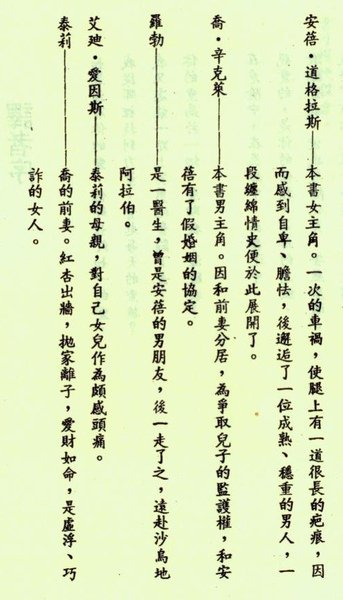 安蓓·道格拉斯——本書女主角。一次的車禍,使腿上有一道很長的疤痕,因
而感到自卑、膽怯,後邂逅了一位成熟、穩重的男人,一
段纏綿情史便於此展開了。
喬·辛克萊————本書男主角。因和前妻分居,為爭取兒子的監護權,和安
蓓有了假婚姻的協定。
羅勃————————是一醫生,曾是安蓓的男朋友,後一走了之,遠赴沙烏地
阿拉伯。
艾廸·愛因斯———泰莉的母親,對自己女兒作為頗感頭痛。
泰莉————————喬的前妻。紅杏出牆,拋家離子,愛財如命,是虛浮、巧
詐的女人。